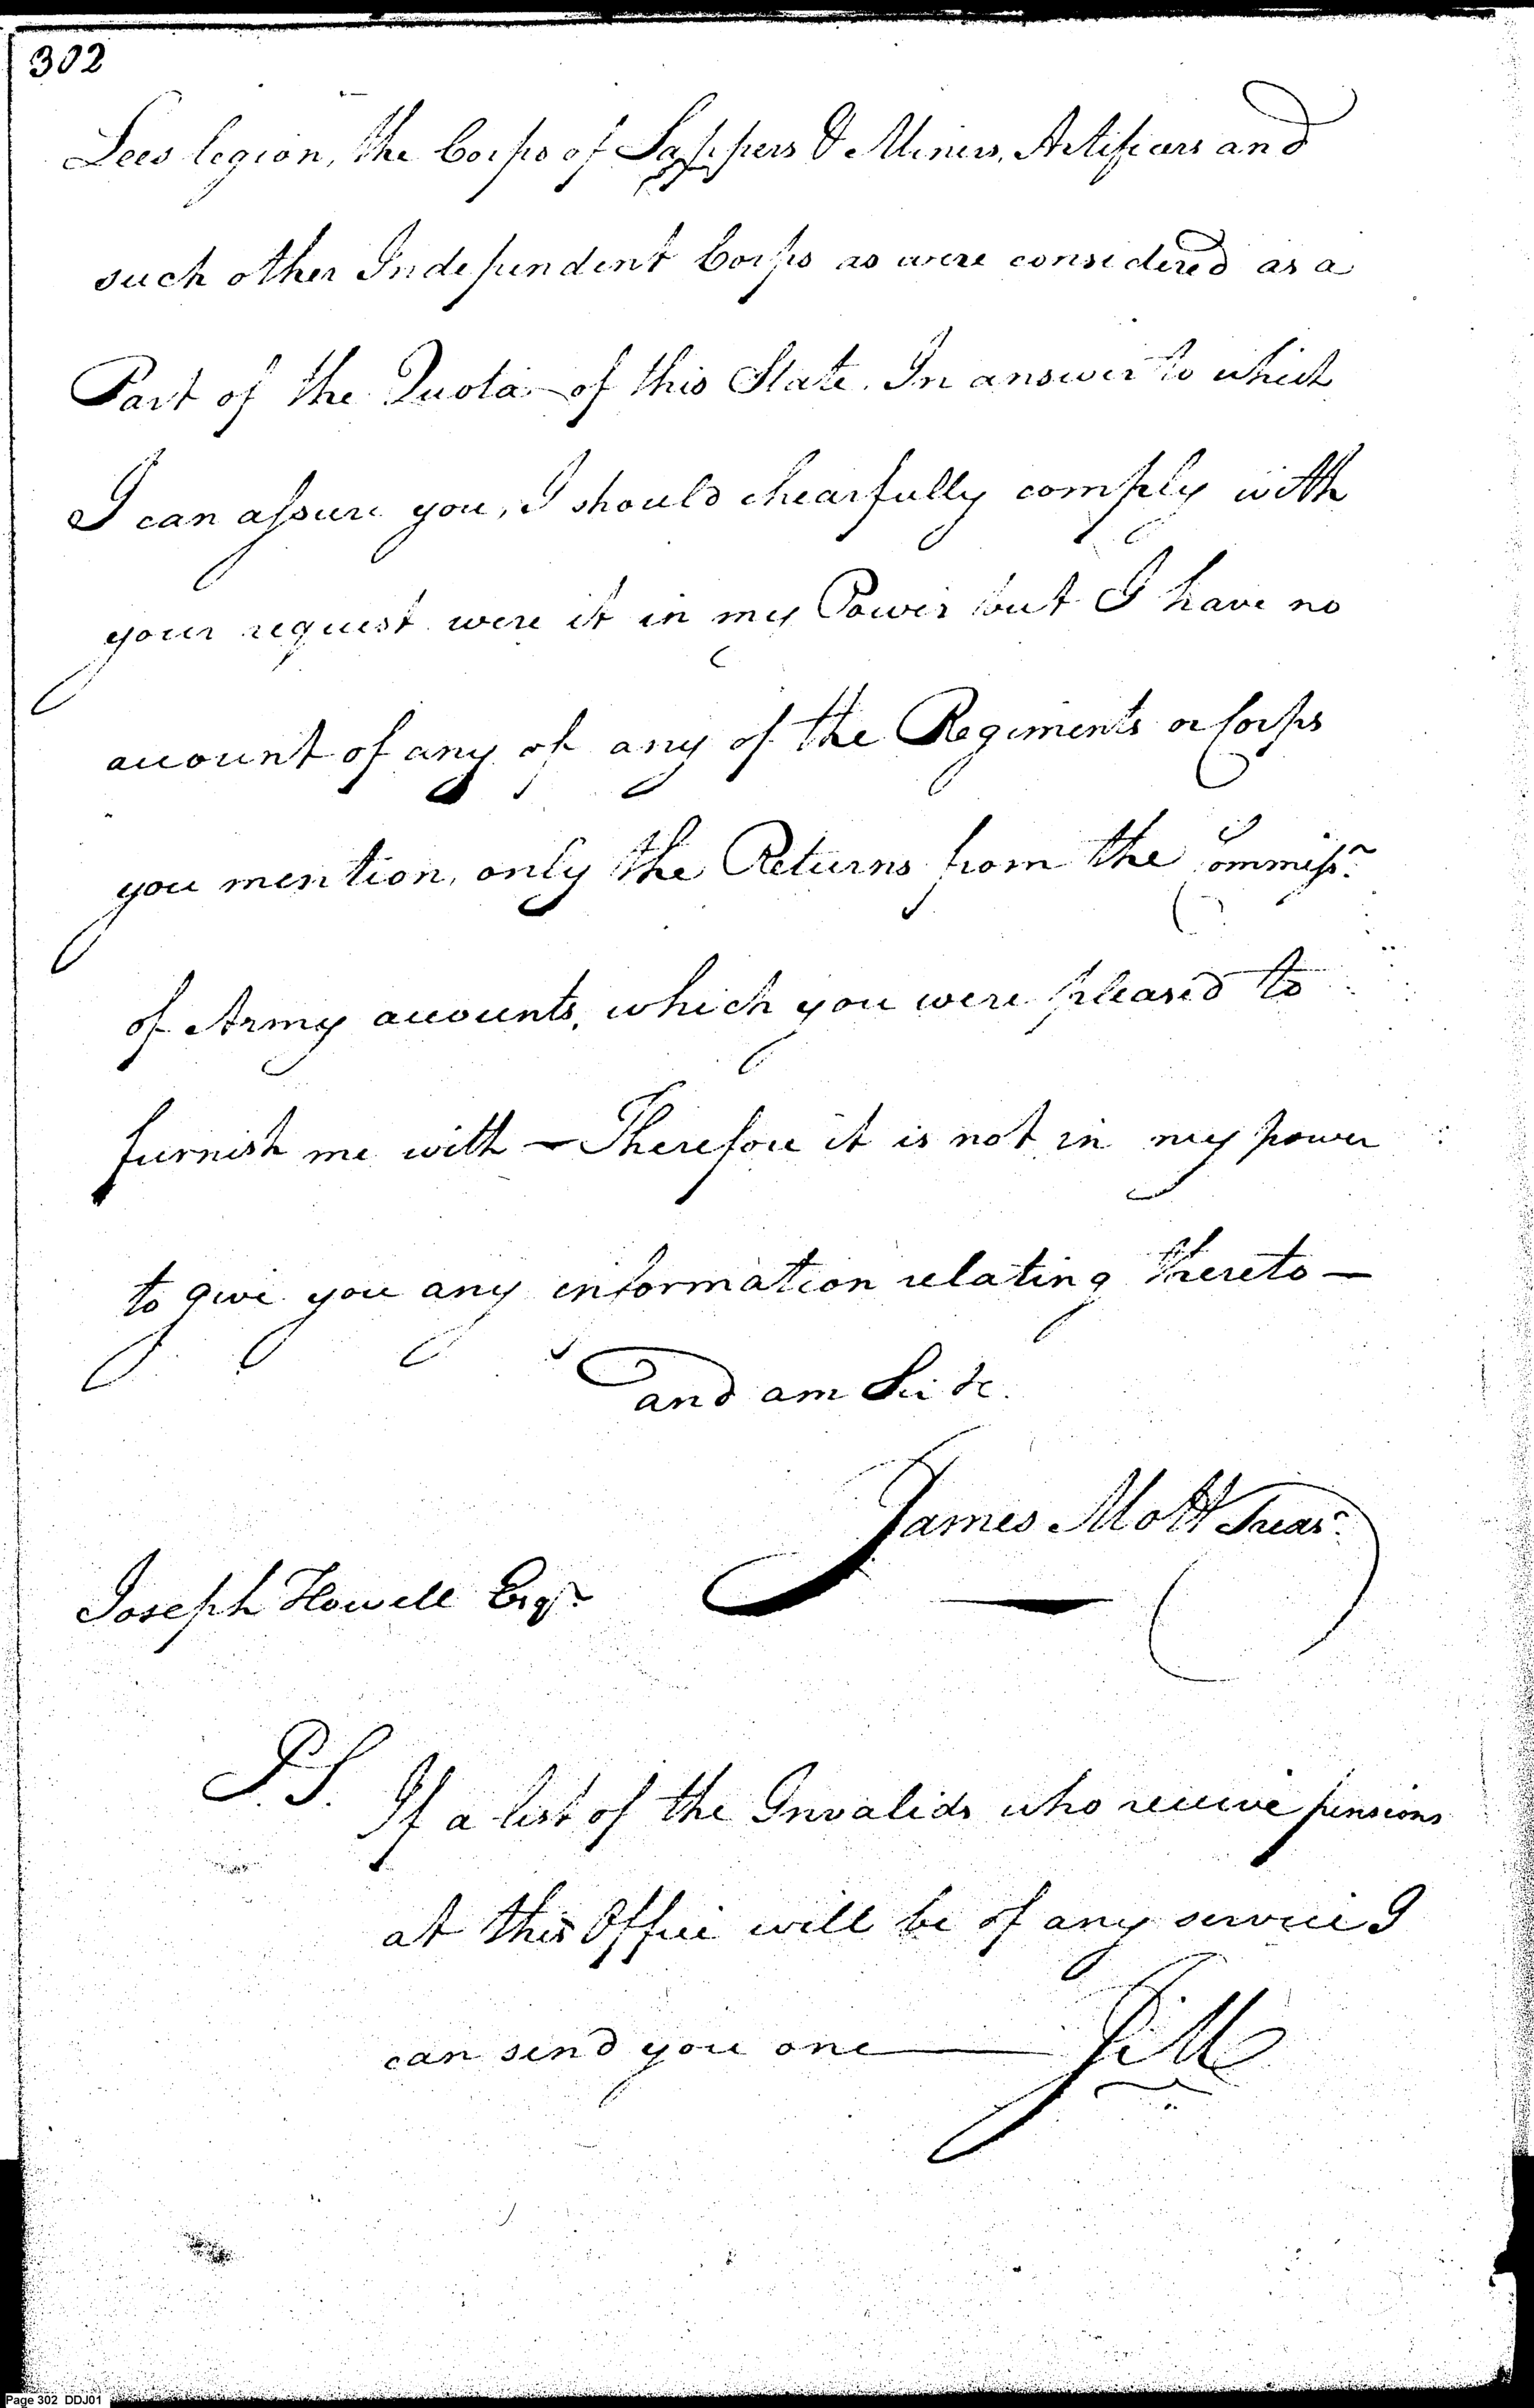 302
Lees legion, the Corps of Sappers & Miners, Artificers and
such other Independent Corps as were considered as a
Part of the Quota - of this State. In answer to which
I can assure you, I should chearfully comply with
your request were it in my Power but I have no
account of any of any of the Regiments or Corps
you mention, only the Returns from the Commissr.
of Army accounts, which you were pleased to
furnish me with — Therefore it is not in my power
to give you any information relating thereto —
and am Sir &c.
James Mott Treasr.
Joseph Howell Esqr.
P.S. If a list of the Invalids who receive pensions
at this Office will be of any service I
can send you one — J.M
Page 302 DDJ01